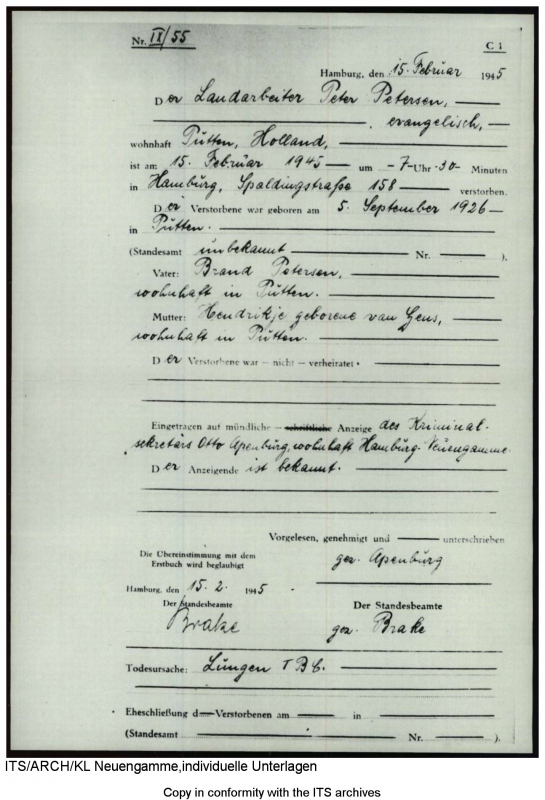 Nr. IX/55
C 1
Hamburg, den 15. Februar 1945
Der Landarbeiter Peter Petersen,
, evangelisch,
wohnhaft Pütten, Holland,
ist am 15. Februar 1945 um -7- Uhr -30- Minuten
in Hamburg, Spaldingstraße 158 verstorben.
Der Verstorbene war geboren am 5. September 1926
in Pütten.
(Standesamt unbekannt Nr. ).
Vater: Brand Petersen,
wohnhaft in Pütten.
Mutter: Hendrikje geborene van Gens,
wohnhaft in Pütten.
Der Verstorbene war – nicht – verheiratet
Eingetragen auf mündliche – schriftliche Anzeige des Kriminal-
sekretärs Otto Apenburg, wohnhaft Hamburg-Neuengamme.
Der Anzeigende ist bekannt.
Vorgelesen, genehmigt und unterschrieben
Die Übereinstimmung mit dem
Erstbuch wird beglaubigt
gez. Apenburg
Hamburg, den 15. 2. 1945
Der Standesbeamte
Der Standesbeamte
Brake
gez. Brake
Todesursache: Lungen TBC.
Eheschließung d Verstorbenen am in
(Standesamt Nr. ).
ITS/ARCH/KL Neuengamme,individuelle Unterlagen
Copy in conformity with the ITS archives